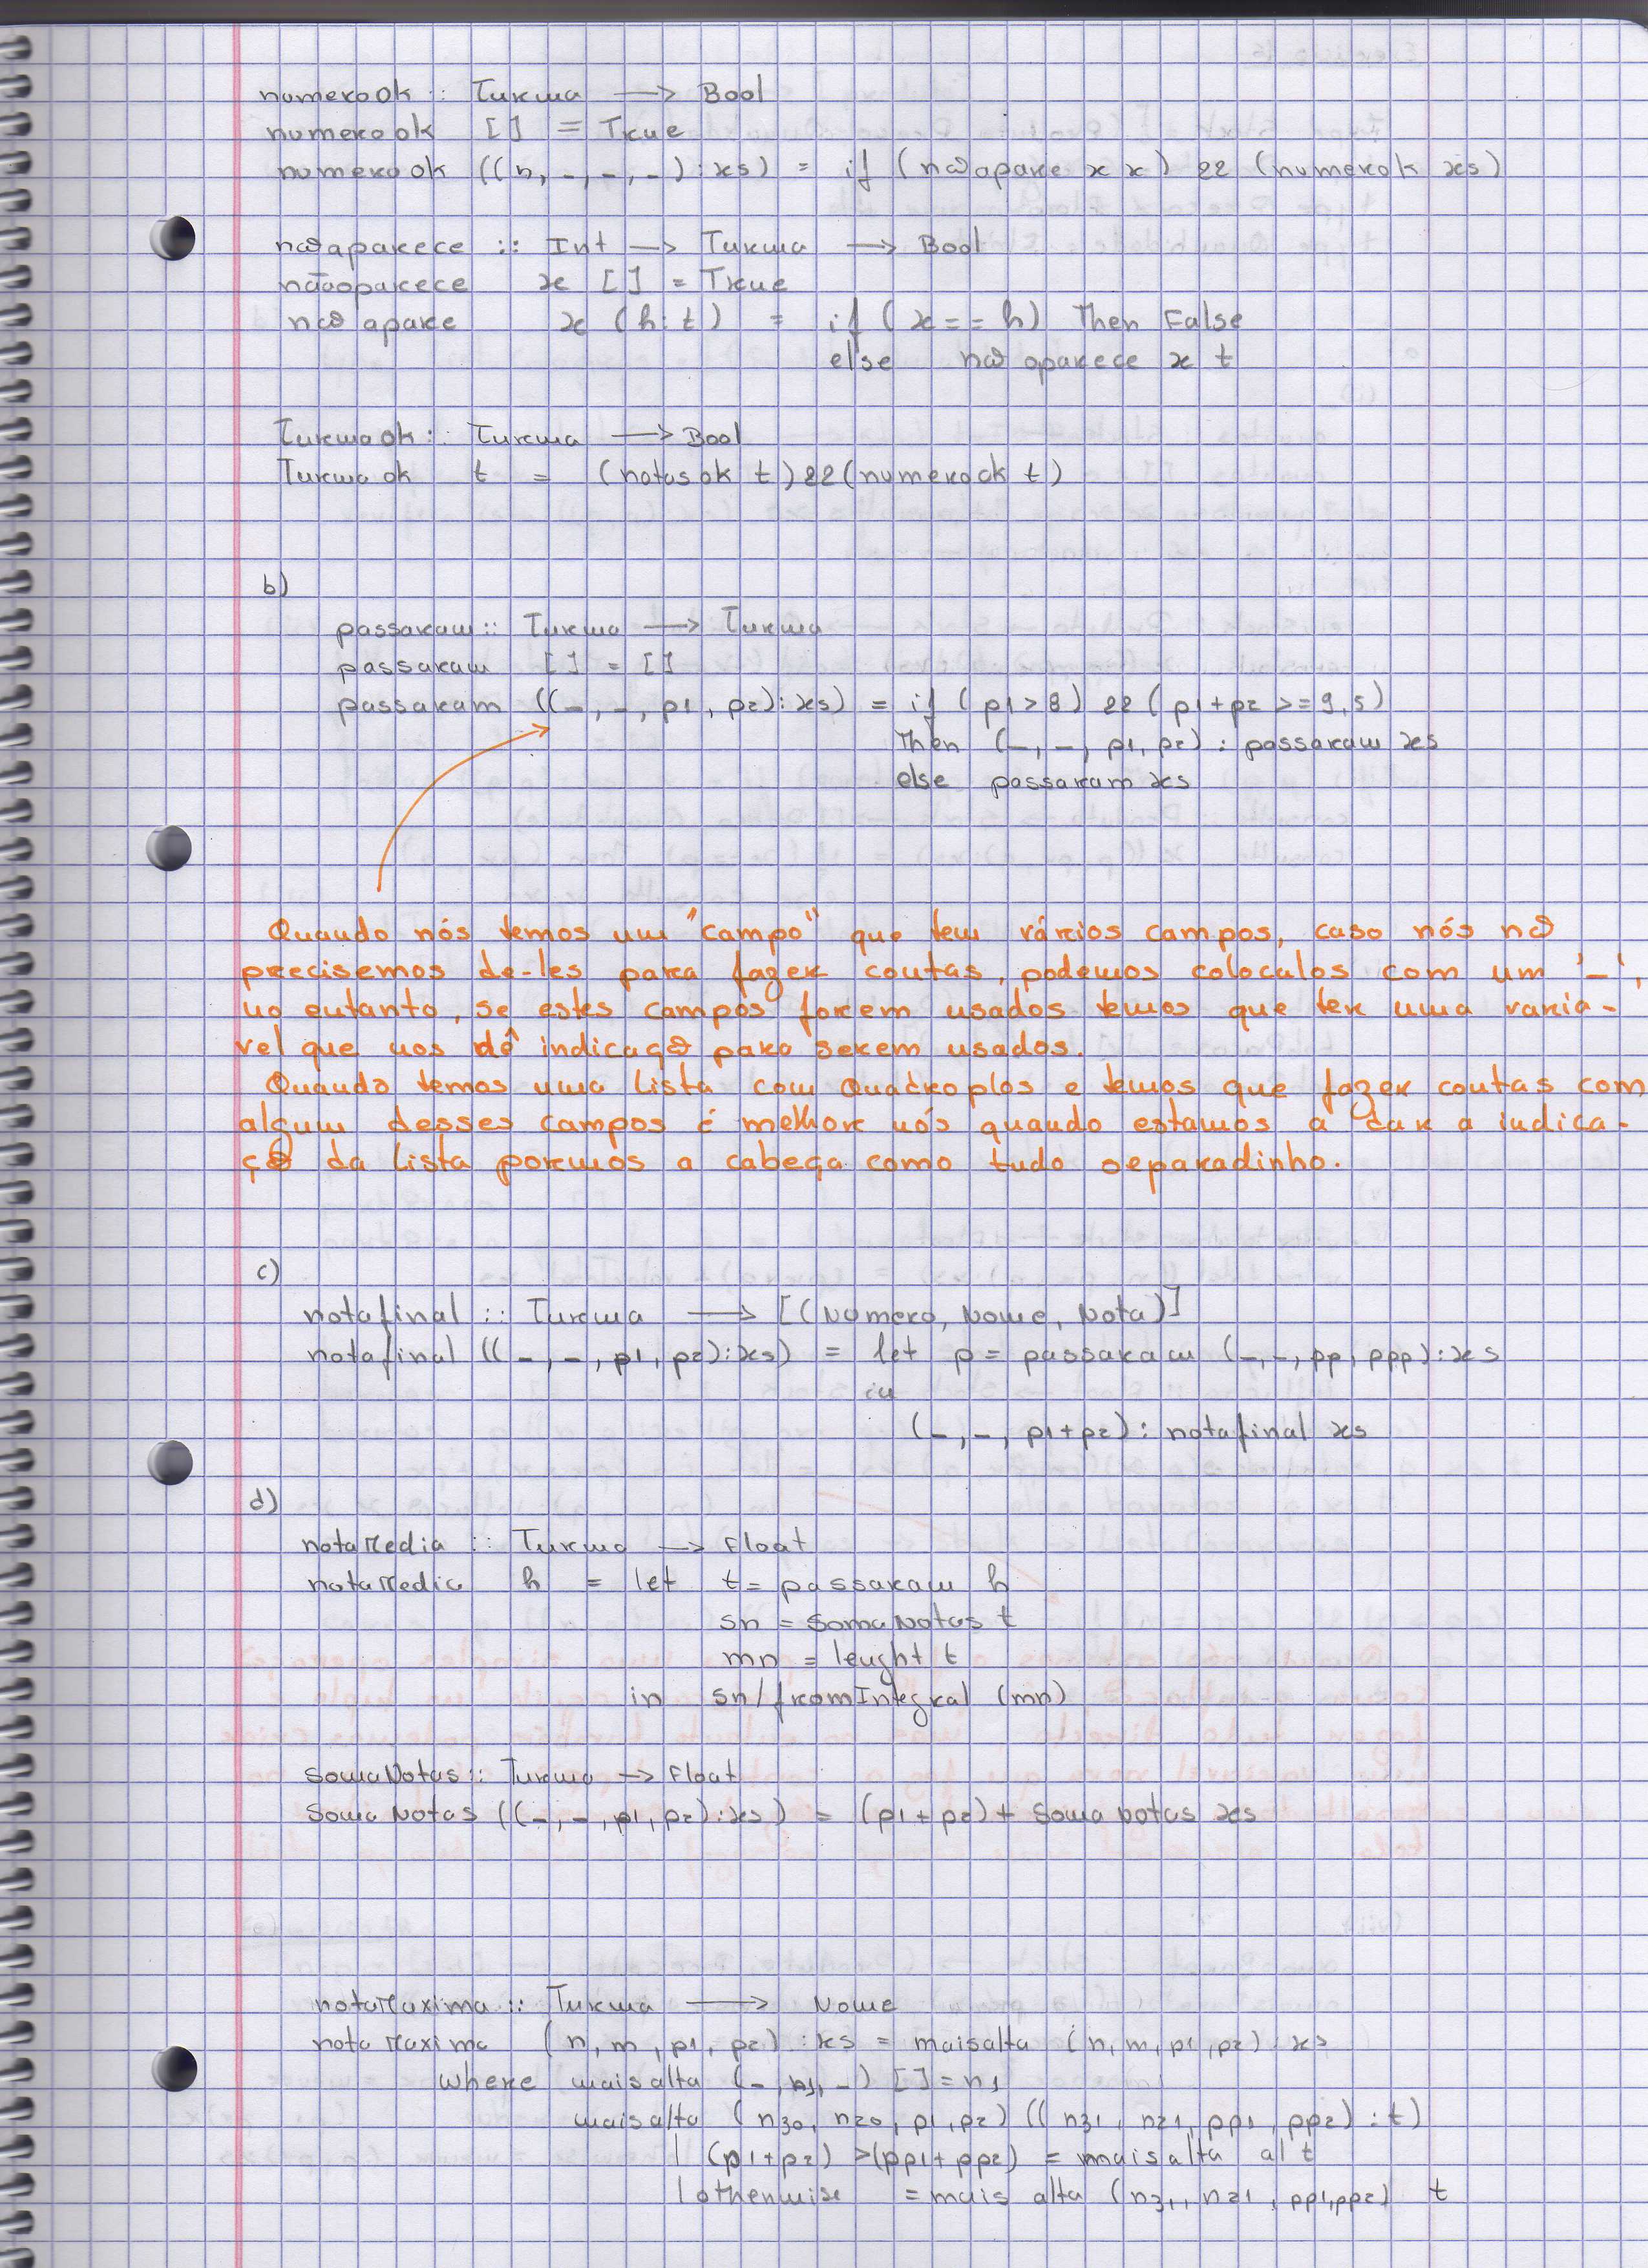 numerook :: Turma -> Bool
numerook [] = True
numerook ((n,_,_,_):xs) = if (nãoapare x x) && (numerok xs)
nãoaparece :: Int -> Turma -> Bool
nãoaparece x [] = True
não apare x (h:t) = if (x == h) Then False
else não aparece x t
Turmaok :: Turma -> Bool
Turmaok t = (notasok t) && (numerook t)
b)
passaram :: Turma -> Turma
passaram [] = []
passaram ((_,_,p1,p2):xs) = if (p1>8) && (p1+p2 >= 9,5)
Then (_,_,p1,p2) : passaram xs
else passaram xs
Quando nós temos um "campo" que tem vários campos, caso nós não
precisemos de-les para fazer contas, podemos colocalos com um '_',
no entanto, se estes campos forem usados temos que ter uma variá-
vel que nos dê indicação para serem usados.
Quando temos uma lista com Quadroplos e temos que fazer contas com
algum desses campos é melhor nós quando estamos a dar a indica-
ção da lista pormos a cabeça como tudo separadinho.
c)
notafinal :: Turma -> [(Numero, Nome, Nota)]
notafinal ((_,_,p1,p2):xs) = let p = passaram (_,_,pp,ppp):xs
in
(_,_,p1+p2) : notafinal xs
d)
notaMedia :: Turma -> Float
notaMedia h = let t = passaram h
sn = somaNotas t
mn = lenght t
in sn/fromIntegral (mn)
somaNotas :: Turma -> Float
Soma Notas ((_,_,p1,p2):xs) = (p1+p2) + Soma notas xs
notaMaxima :: Turma -> Nome
nota Maxima (n,m,p1,p2):xs = maisalta (n,m,p1,p2):xs
where maisalta (_,n1,_) [] = n1
maisalta (n30, n20, p1, p2) ((n31, n21, pp1, pp2):t)
| (p1+p2) > (pp1+pp2) = maisalta al t
| otherwise = mais alta (n31, n21, pp1,pp2) t